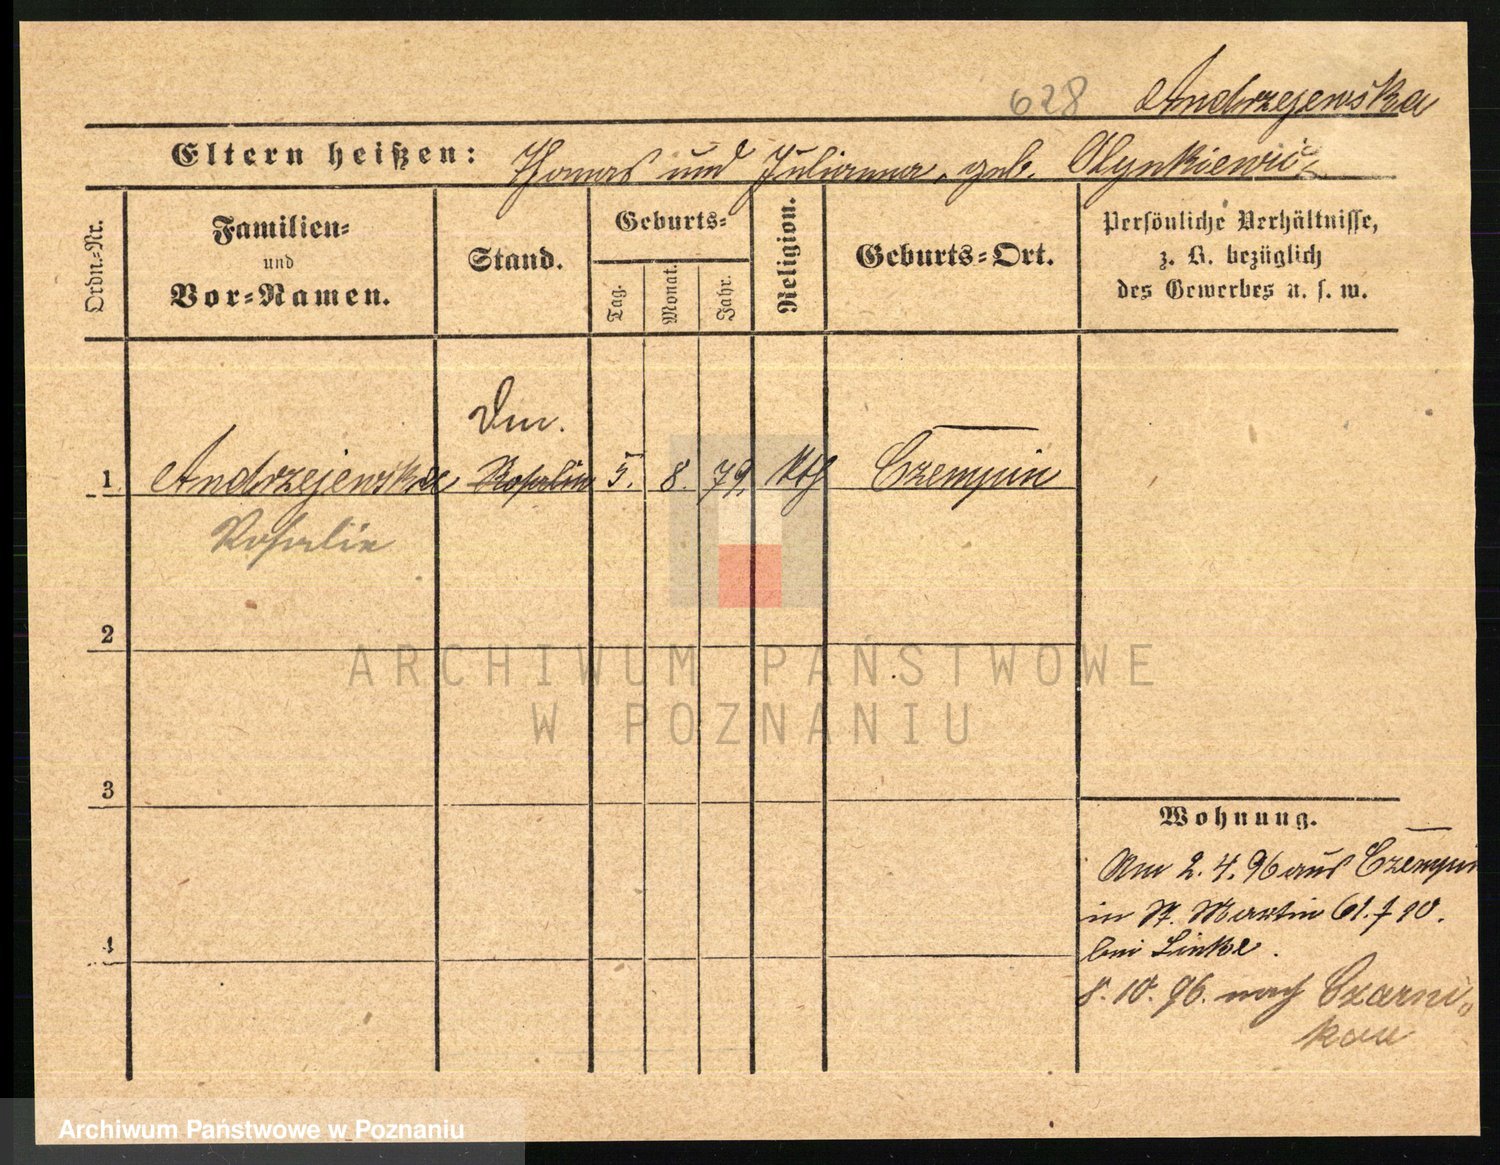 628 Andrzejewska
Eltern heißen: Thomas und Julianna, geb.
Ordn.-Nr.
Familien-
und
Vor-Namen.
Stand.
Geburts-
Tag.
Monat.
Jahr.
Religion.
Geburts-Ort.
Persönliche Verhältnisse,
z. B. bezüglich
des Gewerbes u. s. w.
1 Andrzejewska Rosalie 5. 8. 79. kth Czempin
Rosalie
2
3
4
Wohnung.
Am 2. 4. 96 aus Czempin
in St. Martin 61.
bei Linke.
8. 10. 96. nach Czarni-
kau
ARCHIWUM PAŃSTWOWE
W POZNANIU
Archiwum Państwowe w Poznaniu